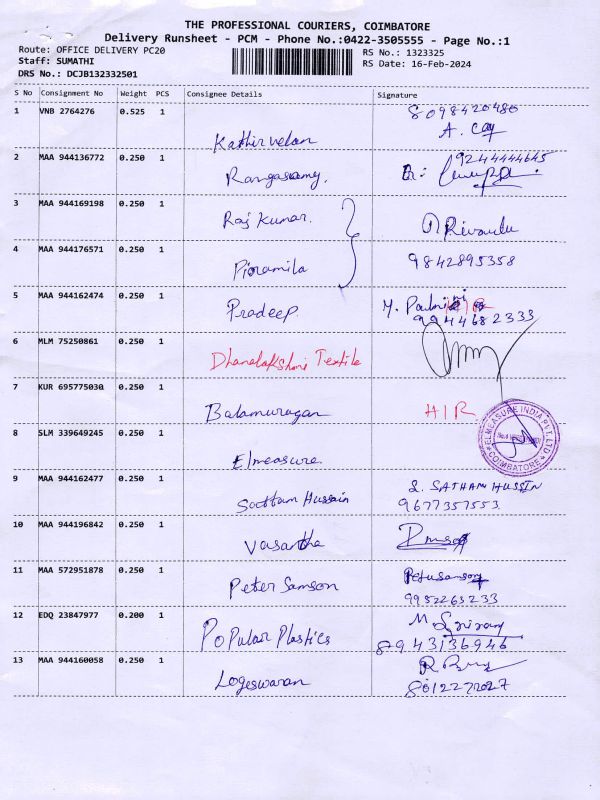 THE PROFESSIONAL COURIERS, COIMBATORE
Delivery Runsheet - PCM - Phone No.:0422-3505555 - Page No.:1
Route: OFFICE DELIVERY PC20
RS No.: 1323325
Staff: SUMATHI
RS Date: 16-Feb-2024
DRS No.: DCJB132332501
S No Consignment No Weight PCS Consignee Details Signature
1 VNB 2764276 0.525 1 Kathirvelan 8098420480
A.
2 MAA 944136772 0.250 1 Rangasamy. 9244444645
3 MAA 944169198 0.250 1 Raj Kumar.
4 MAA 944176571 0.250 1 Piramila 9842895358
5 MAA 944162474 0.250 1 Pradeep. 9944682333
6 MLM 75250861 0.250 1 Dhanalakshmi Textile
7 KUR 695775030 0.250 1 Balamurugan H/R
ELMEASURE INDIA PVT. LTD
COIMBATORE
8 SLM 339649245 0.250 1 Elmeasure
9 MAA 944162477 0.250 1 Saddham Hussain S. SATHAM HUSSIN
9677357553
10 MAA 944196842 0.250 1 Vasantha
11 MAA 572951878 0.250 1 Peter Samson
9952263233
12 EDQ 23847977 0.200 1 Popular Plastics
8943136946
13 MAA 944160058 0.250 1 Logeswaran
8012272027